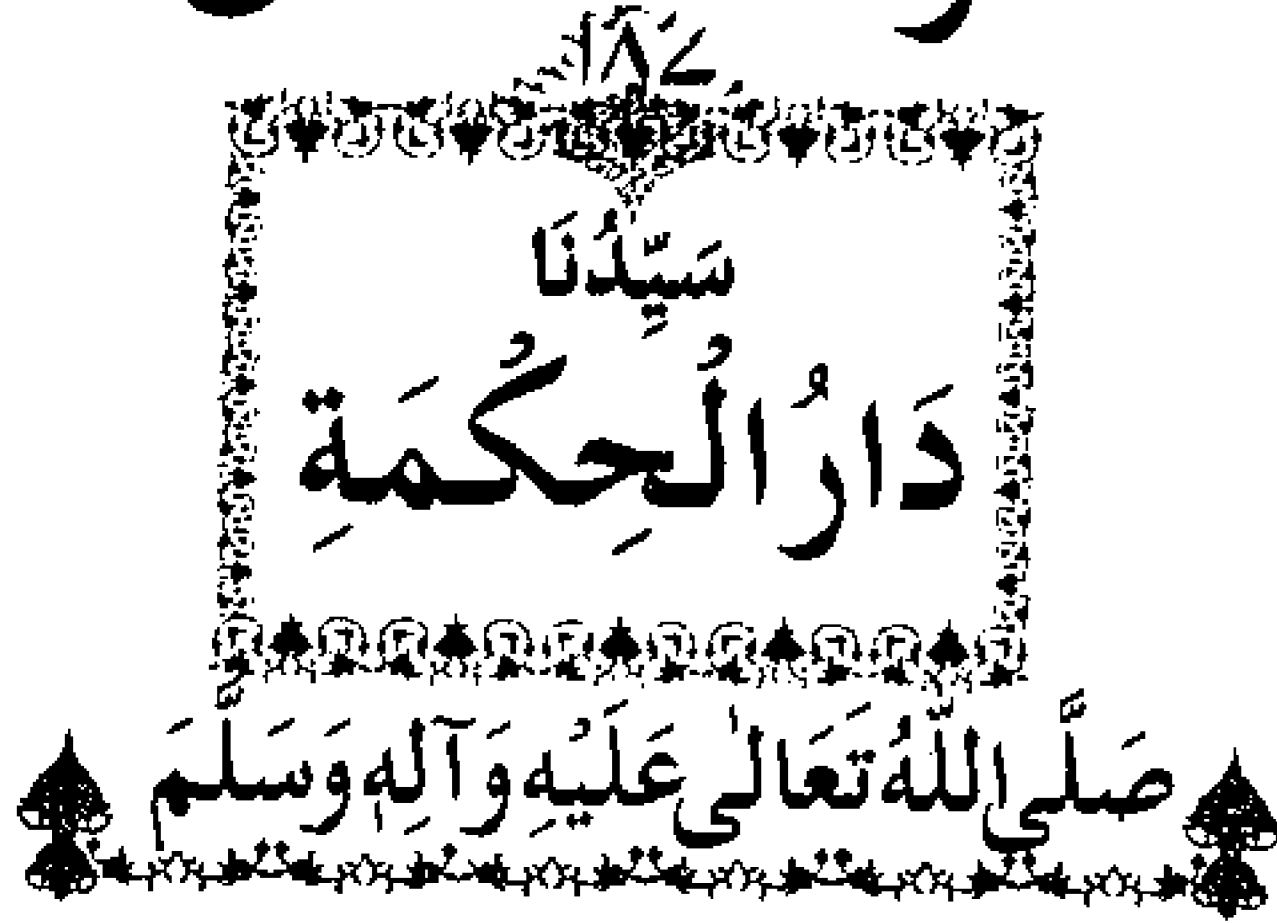 ۱۸۷
سَيِّدُنَا
دَارُ الْحِكْمَةِ
صَلَّی اللّٰهُ تَعَالٰی عَلَيْهِ وَآلِهٖ وَسَلَّمَ